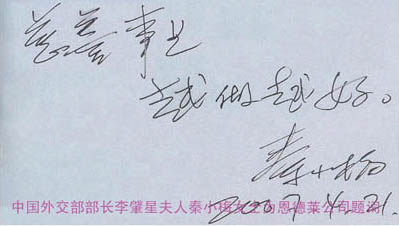 慈善事业
越做越好。
秦小梅
2007.4.21.
中国外交部部长李肇星夫人秦小梅女士为恩德莱公司题词